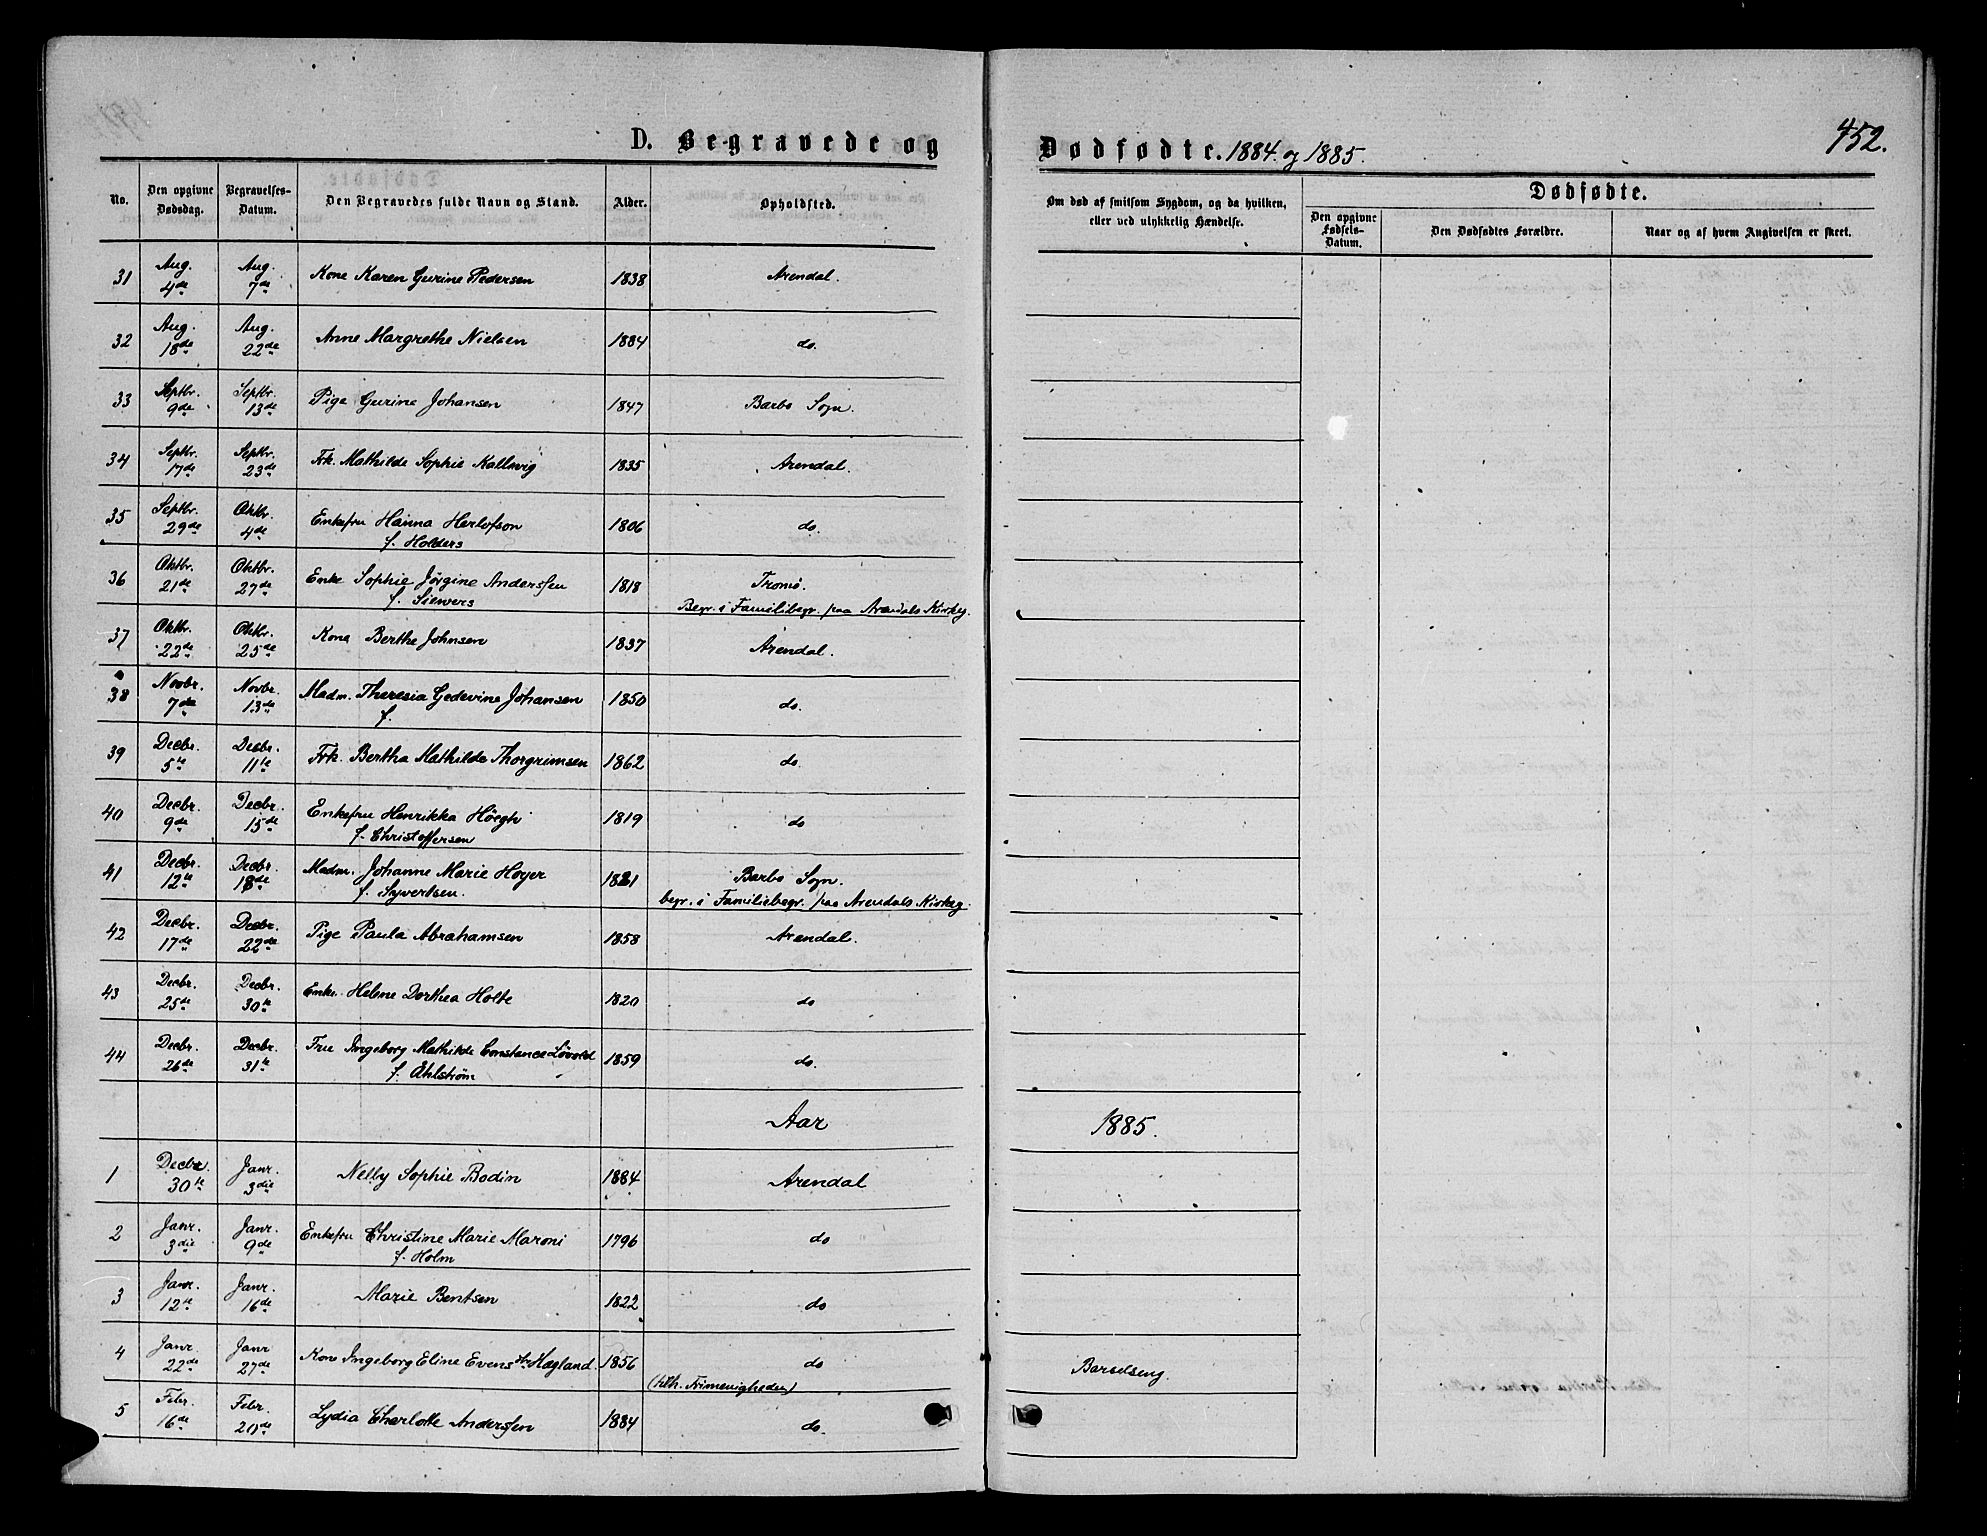 452.
D. Begravede og Dødfødte. 1884. og 1885.
No.
Den opgivne Dødsdag.
Begravelses-Datum.
Den Begravedes fulde Navn og Stand.
Alder.
Opholdsted.
Om død af smitsom Sygdom, og da hvilken, eller ved ulykkelig Hændelse.
Dødfødte.
Den opgivne Fødsels-Datum.
Den Dødfødtes Forældre.
Naar og af hvem Angivelsen er skeet.
31 Aug. 4de Aug. 7de Kone Karen Gurine Pedersen 1838 Arendal.
32 Aug. 18de Aug. 22de Anne Margrethe Nielsen 1884 do.
33 Septbr. 9de Septbr. 13de Pige Gurine Johansen 1847 Barbo Sogn.
34 Septbr. 17de Septbr. 23de Frk. Mathilde Sophie Kallevig 1835 Arendal.
35 Septbr. 29de Oktbr. 4de Enkefru Hanna Herlofson 1806 do.
f. Holders
36 Oktbr. 21de Oktbr. 27de Enke Sophie Jörgine Anderssen 1818 Tromö.
f. Siewers Begr. i Familiebegr. paa Arendals Kirkeg.
37 Oktbr. 22de Oktbr. 25de Kone Berthe Johnsen 1837 Arendal.
38 Novbr. 7de Novbr. 13de Madm. Theresia Gedevine Johansen 1850 do.
f.
39 Decbr. 5te Decbr. 11te Frk. Bertha Mathilde Thorgrimsen 1862 do.
40 Decbr. 9de Decbr. 15de Enkefru Henrikka Höegh 1819 do
f. Christoffersen
41 Decbr. 12te Decbr. 18de Madm. Johanne Marie Hoyer 1821 Barbo Sogn.
f. Syvertsen. begr. i Familiebegr. paa Arendals Kirkeg.
42 Decbr. 17de Decbr. 22de Pige Paula Abrahamsen 1858 Arendal.
43 Decbr. 25de Decbr. 30te Enke Helene Dorthea Holte 1820 do
44 Decbr. 26de Decbr. 31te Fru Ingeborg Mathilde Constance Lövold 1859 do.
f. Ahlström
Aar 1885.
1 Decbr. 30te Janr. 3die Nelly Sophie Bodin 1884 Arendal
2 Janr. 3die Janr. 9de Enkefru Christine Marie Maroni 1796 do
f. Holm
3 Janr. 12te Janr. 16de Marie Bentsen 1822 do
4 Janr. 22de Janr 27de Kone Ingeborg Eline Evens Hægland. 1856 do Barselseng.
(tilh. Frimenigheden)
5 Febr. 16de Febr. 20de Lydia Charlotte Anderssen 1884 do.